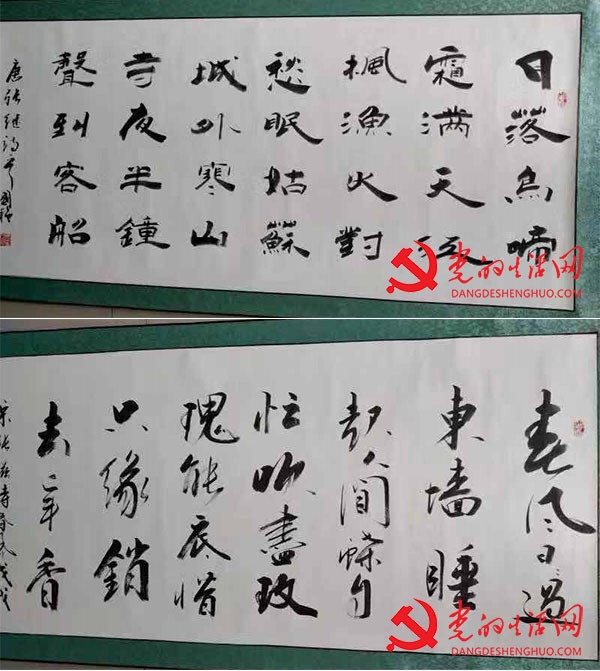 日落烏啼
霜满天江
楓漁火對
愁眠姑蘇
城外寒山
寺夜半鐘
聲到客船
唐張繼詩
党的生活网
DANGDESHENGHUO.COM
春风日過
東墙睡
起人間蝶自
忙吹盡玫
瑰能衣惜
只缘銷
去一年香
党的生活网
DANGDESHENGHUO.COM